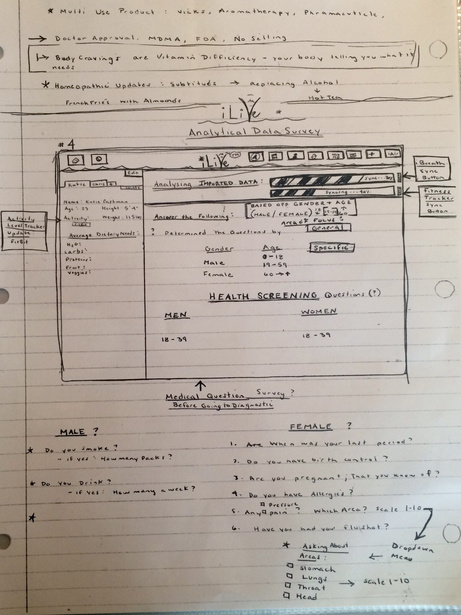 * Multi Use Product: Vicks, Aromatherapy, Paramaceutic,
→ Doctor Approval. MDMA, FDA, No Selling
→ Body Cravings are Vitamin Difficiency - your body telling you what it needs
* Homeopathic Updates: Subtitues → Replacing Alcohol
↓
French Fries with Almonds
Hot Tea
iLiVe
Analytical Data Survey
#4
iLiVe
Edit
Analyzing IMPORTED DATA:
Sync
Syncing
Breath Sync Button
Fitness Tracker Sync Button
Name: Katie
Age: 23 Height 5'4"
Activity: Weight:
Average Dietary Needs:
H2O:
Carbs:
Proteins:
Fruit:
Veggies:
Activity Level Tracker Update FitBit
Answer the Following:
BASED OFF GENDER + AGE
(MALE / FEMALE)
AREA OF FOCUS
General
? Determined the Questioned by
Specific
Gender Age
0-18
Male 19-59
Female 60 →+
HEALTH SCREENING Questions (?)
MEN WOMEN
18-39 18-39
↑
Medical Question Survey?
Before Going to Diagnostic
MALE ?
* Do you smoke?
- if yes: How many Packs?
* Do you Drink?
- if yes: How many a week?
*
FEMALE ?
1. Are When was your last period?
2. Do you have birth control?
3. Are you pregnant, that you know of?
4. Do you have Allergies?
□ Pressure
5. Any pain? Which Area? Scale 1-10
6. Have you had your flu shot?
* Asking About Areas:
Dropdown Menu
□ Stomach
□ Lungs
□ Throat
□ Head
→ Scale 1-10